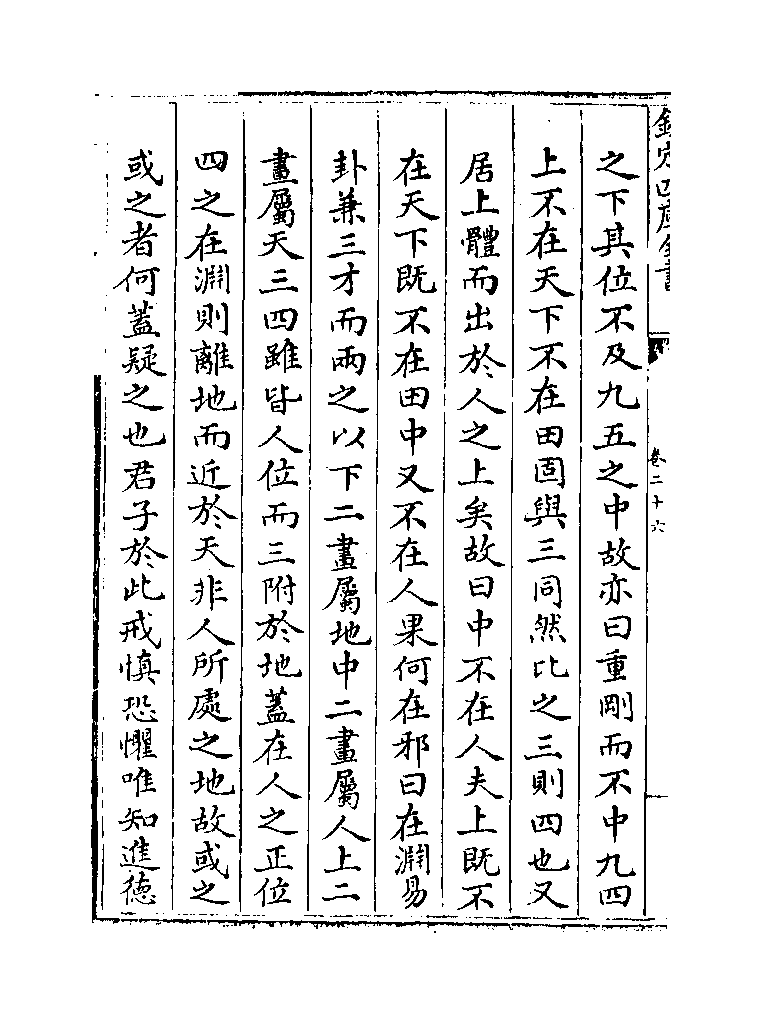 欽定四庫全書
卷二十六
之下其位不及九五之中故亦曰重剛而不中九四
上不在天下不在田固與三同然比之三則四也又
居上體而出於人之上矣故曰中不在人夫上既不
在天下既不在田中又不在人果何在邪曰在淵易
卦兼三才而兩之以下二畫屬地中二畫屬人上二
畫屬天三四雖皆人位而三附於地蓋在人之正位
四之在淵則離地而近於天非人所處之地故或之
或之者何蓋疑之也君子於此戒慎恐懼唯知進德